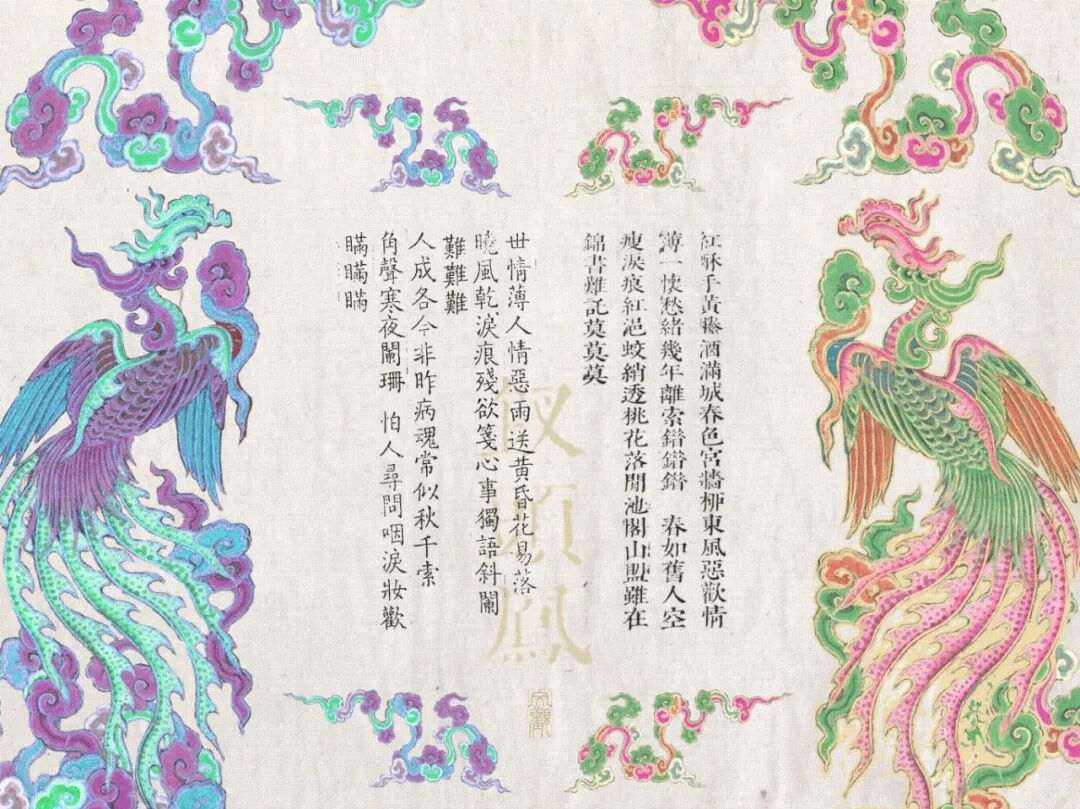 紅酥手黃縢酒滿城春色宮牆柳東風惡歡情
薄一懷愁緒幾年離索錯錯錯 春如舊人空
瘦淚痕紅浥蛟綃透桃花落閒池閣山盟雖在
錦書難託莫莫莫
世情薄人情惡雨送黃昏花易落
曉風乾淚痕殘欲箋心事獨語斜闌
難難難
人成各今非昨病魂常似秋千索
角聲寒夜闌珊 怕人尋問咽淚妝歡
瞞瞞瞞
釵頭鳳